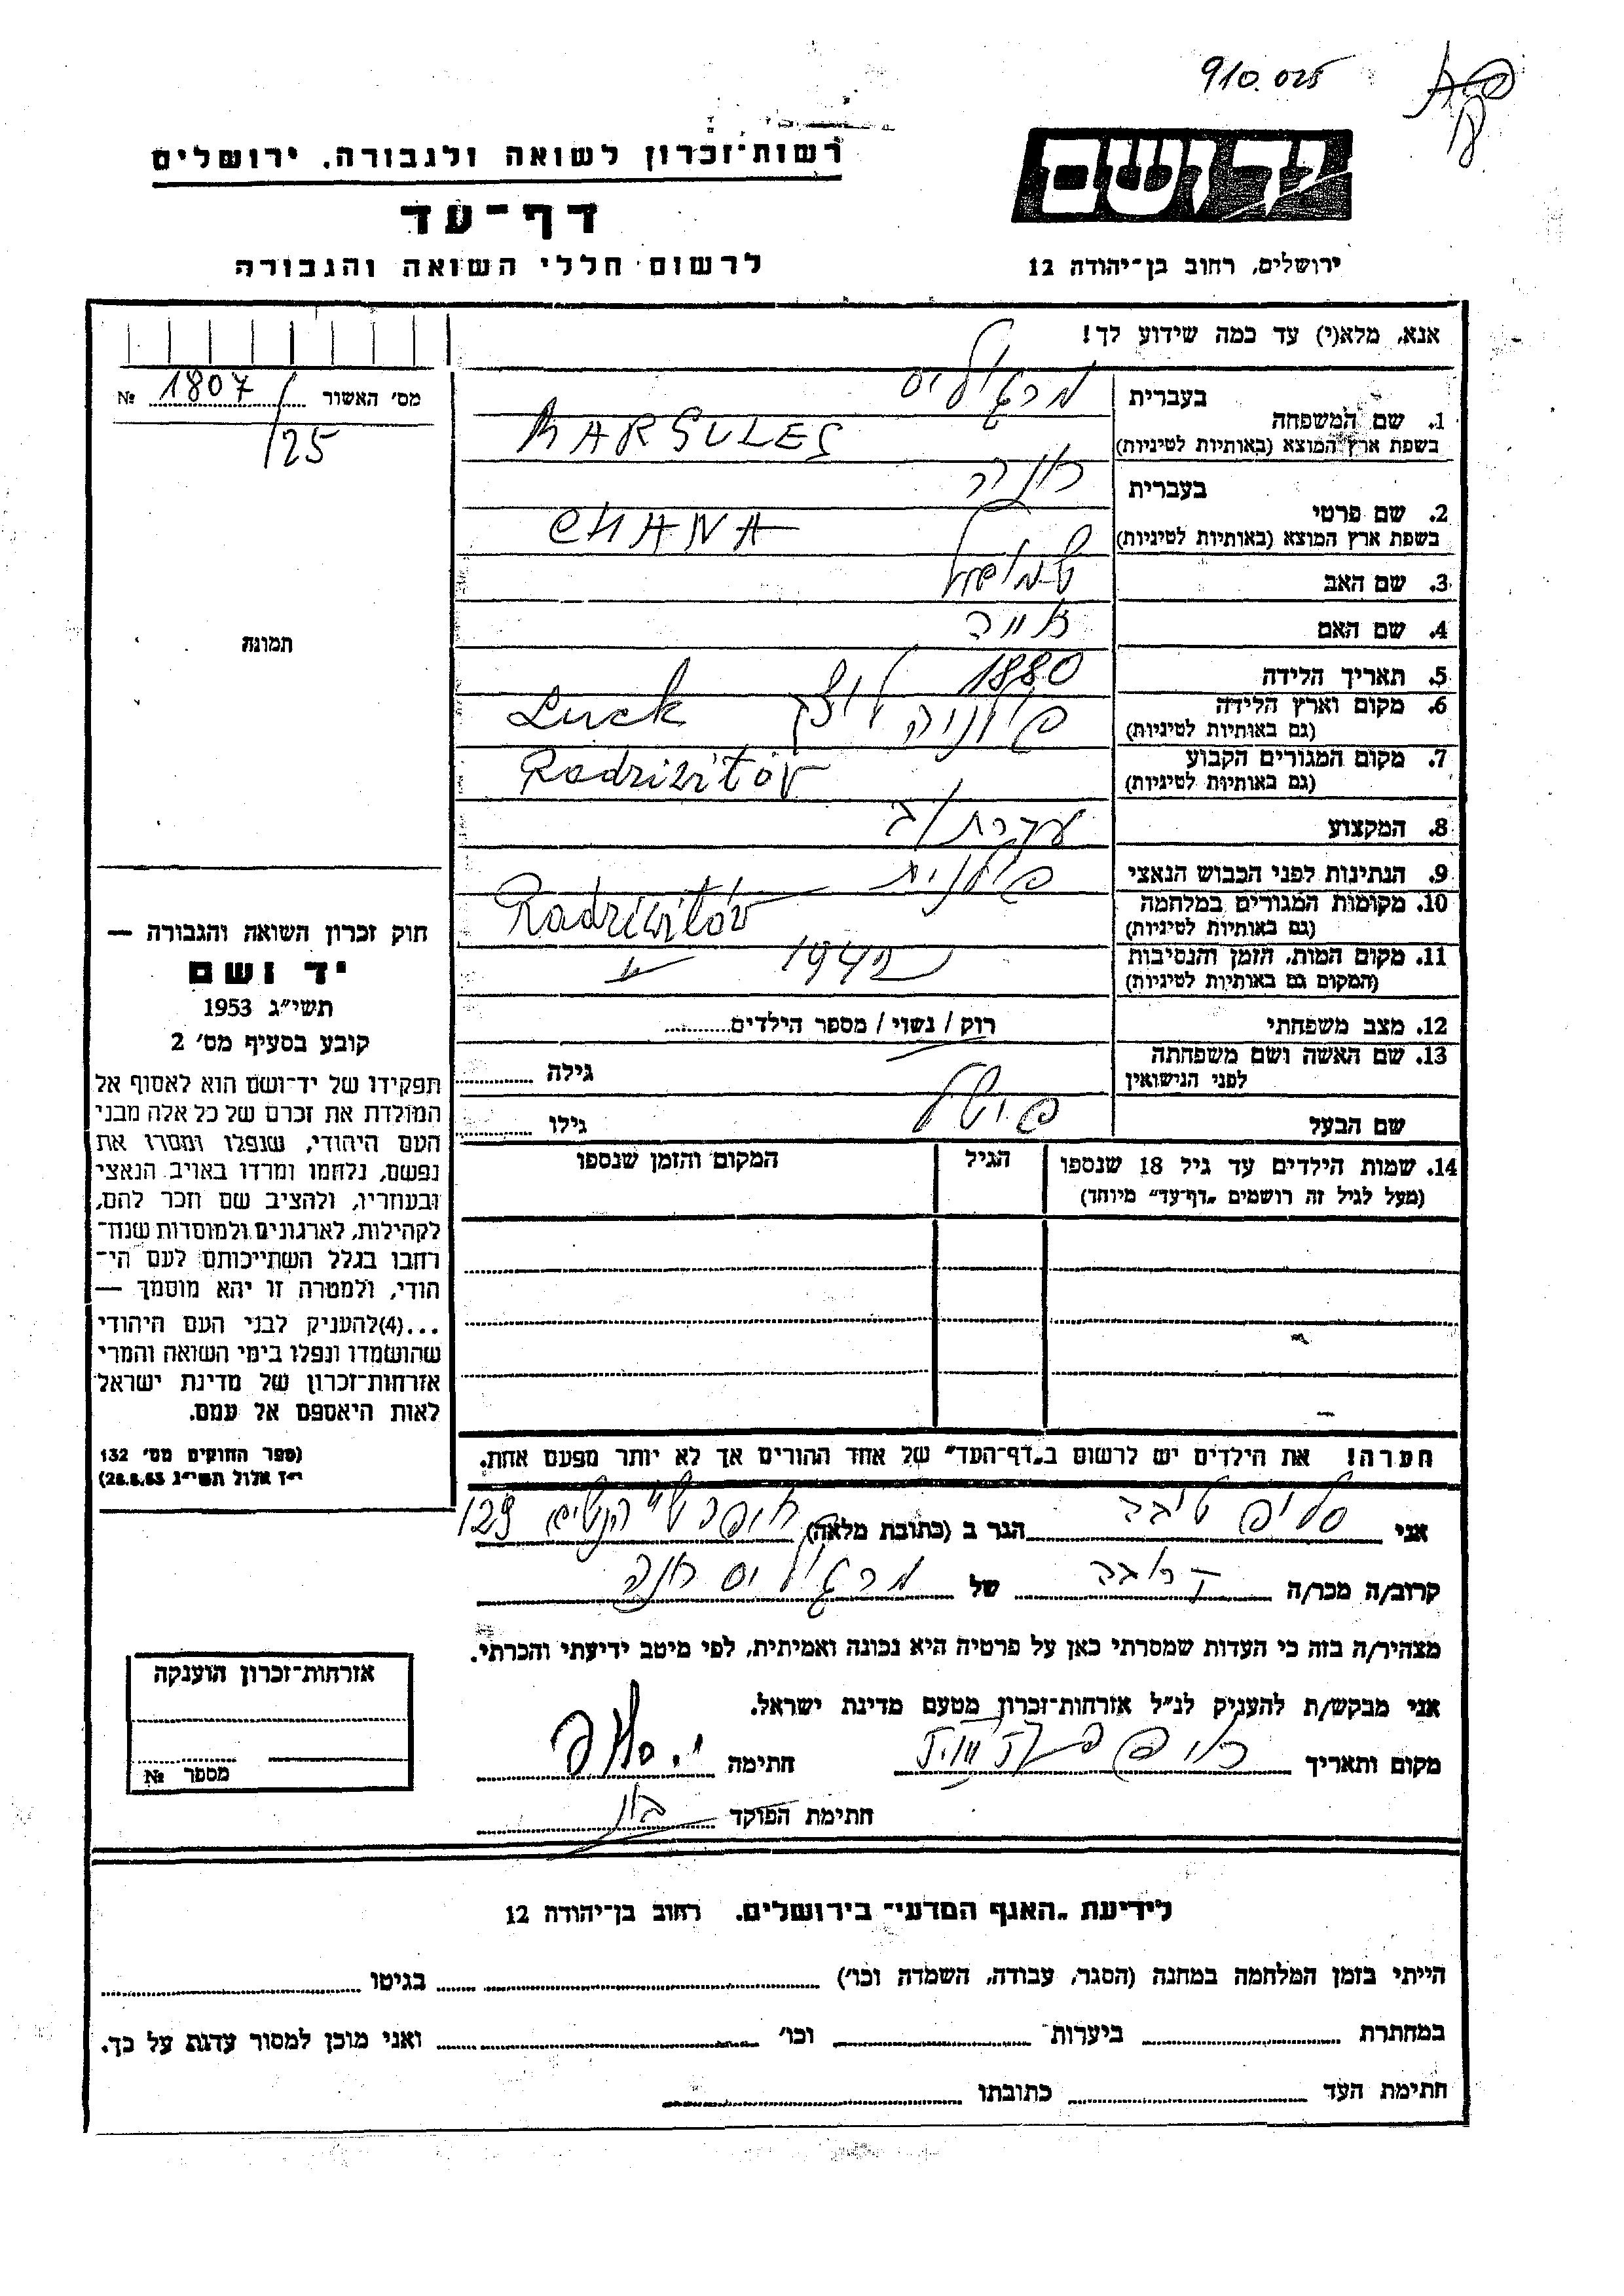 910.025
רשות-זכרון לשואה ולגבורה, ירושלים
דף-עד
לרשום חללי השואה והגבורה
יד ושם
ירושלים, רחוב בן-יהודה 12
אנא, מלא(י) עד כמה שידוע לך!
מס׳ האשור 1807 №
/25
תמונה
בעברית
1. שם המשפחה
בשפת ארץ המוצא (באותיות לטיניות) MARGULES
בעברית חנה
2. שם פרטי
בשפת ארץ המוצא (באותיות לטיניות) CHANA
3. שם האב שמואל
4. שם האם
5. תאריך הלידה 1880
6. מקום וארץ הלידה פולניה לוצק Luck
(גם באותיות לטיניות)
7. מקום המגורים הקבוע
(גם באותיות לטיניות)
8. המקצוע עקרת/ב
9. הנתינות לפני הכבוש הנאצי פולנית
10. מקומות המגורים במלחמה
(גם באותיות לטיניות)
11. מקום המות, הזמן והנסיבות 1942
(המקום גם באותיות לטיניות)
12. מצב משפחתי רוק / נשוי / מספר הילדים
13. שם האשה ושם משפחתה
לפני הנישואין גילה
שם הבעל פישל גילו
14. שמות הילדים עד גיל 18 שנספו הגיל המקום והזמן שנספו
(מעל לגיל זה רושמים „דף-עד״ מיוחד)
חוק זכרון השואה והגבורה —
יד ושם
תשי״ג 1953
קובע בסעיף מס׳ 2
תפקידו של יד-ושם הוא לאסוף אל
המולדת את זכרם של כל אלה מבני
העם היהודי, שנפלו ומסרו את
נפשם, נלחמו ומרדו באויב הנאצי
ובעוזריו, ולהציב שם וזכר להם,
לקהילות, לארגונים ולמוסדות שנח-
רחבו בגלל השתייכותם לעם הי-
הודי, ולמטרה זו יהא מוסמך —
...(4)להעניק לבני העם היהודי
שהושמדו ונפלו בימי השואה והמרי
אזרחות-זכרון של מדינת ישראל
לאות היאספם אל עמם.
(ספר החוקים מס׳ 132
י״ז אלול תשי״ג 28.8.53)
הערה! את הילדים יש לרשום ב„דף-העד״ של אחד ההורים אך לא יותר מפעם אחת.
אני הגר ב (כתובת מלאה) 129
קרוב/ה מכר/ה קרובה של מרגוליס חנה
מצהיר/ה בזה כי העדות שמסרתי כאן על פרטיה היא נכונה ואמיתית, לפי מיטב ידיעתי והכרתי.
אני מבקש/ת להעניק לנ״ל אזרחות-זכרון מטעם מדינת ישראל.
מקום ותאריך חתימה
חתימת הפוקד
אזרחות-זכרון הוענקה
מספר №
לידיעת „האגף המדעי״ בירושלים. רחוב בן-יהודה 12
הייתי בזמן המלחמה במחנה (הסגר, עבודה, השמדה וכו׳) בגיטו
במחתרת ביערות וכו׳ ואני מוכן למסור עדות על כך.
חתימת העד כתובתו